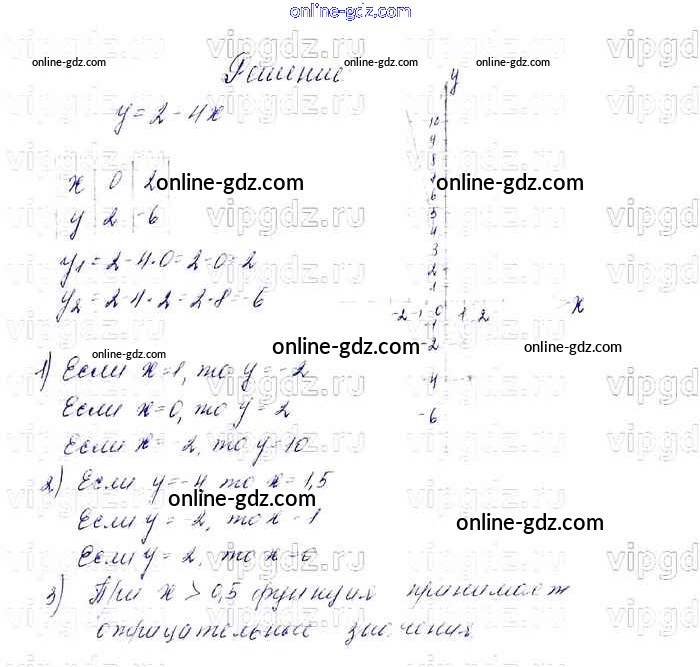 online-gdz.com
vipgdz.ru
Решение
y = 2 - 4x
x | 0 | 2
y | 2 | -6
y₁ = 2 - 4·0 = 2 - 0 = 2
y₂ = 2 - 4·2 = 2 - 8 = -6
1) Если x = 1, то y = -2
Если x = 0, то y = 2
Если x = -2, то y = 10
2) Если y = -4 то x = 1,5
Если y = -2, то x = 1
Если y = 2, то x = 0
3) При x > 0,5 функция принимает
отрицательные значения
y
10
8
6
5
4
3
2
1
-2 -1 0 1 2 x
-1
-2
-4
-6
online-gdz.com
online-gdz.com
online-gdz.com
online-gdz.com
online-gdz.com
online-gdz.com
online-gdz.com
online-gdz.com
online-gdz.com
online-gdz.com